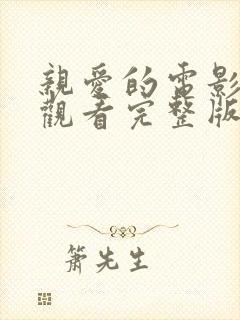 親愛的電影
觀看完整版
簫先生